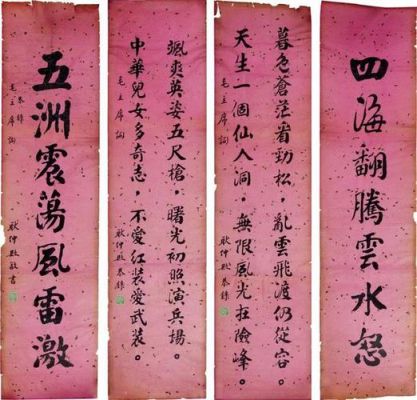 四海翻騰雲水怒
暮色蒼茫看勁松,亂雲飛渡仍從容。
天生一個仙人洞,無限風光在險峰。
毛主席詞
耿仲 恭錄
颯爽英姿五尺槍,曙光初照演兵場。
中華兒女多奇志,不愛紅裝愛武裝。
毛主席詞
耿仲 恭錄
五洲震蕩風雷激
恭錄
毛主席詞
耿仲 敬書